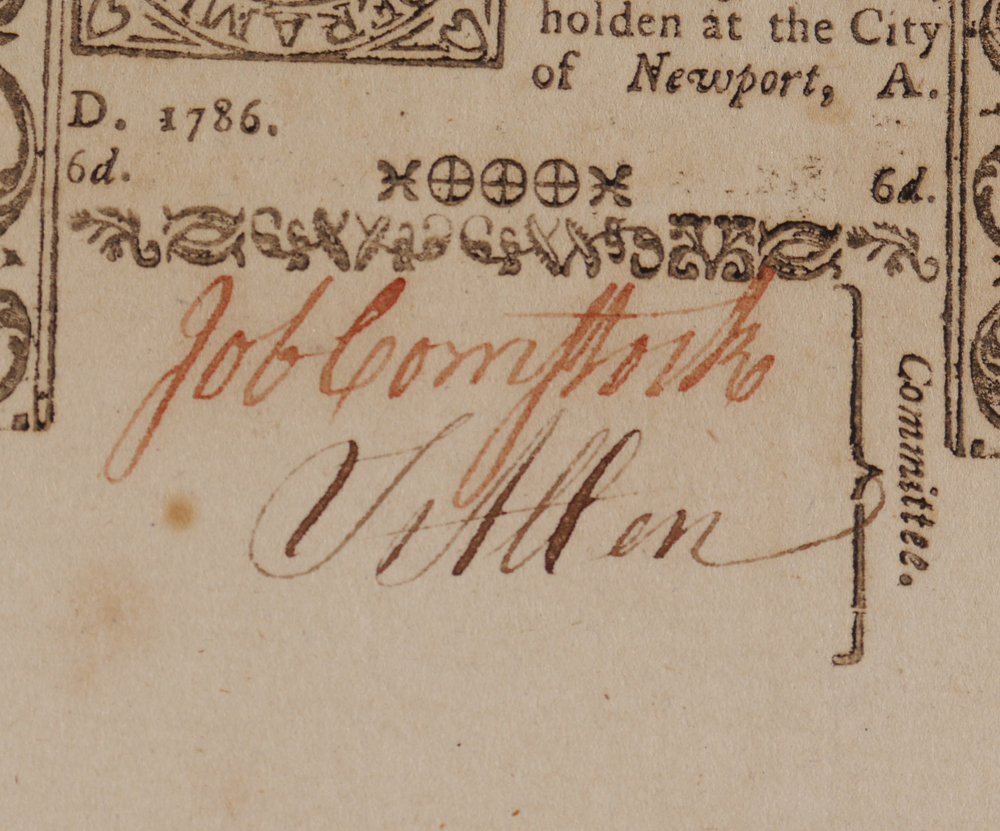 holden at the City
of Newport, A.
D. 1786.
6d. 6d.
Job Comſtock
Allen
Committee.